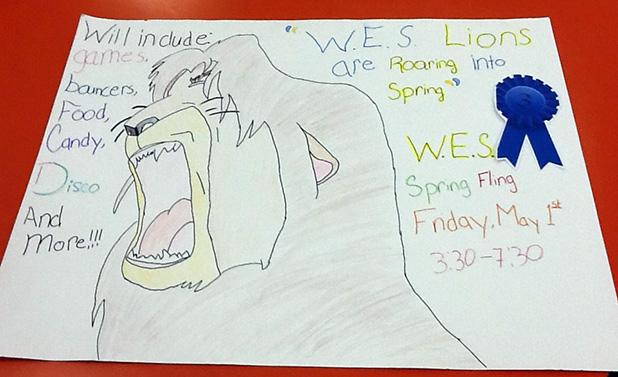 Will include:
games,
bouncers,
Food,
Candy,
Disco
And
More!!!
"W.E.S. Lions
are Roaring into
Spring"
W.E.S.
Spring Fling
Friday, May 1st
3:30-7:30